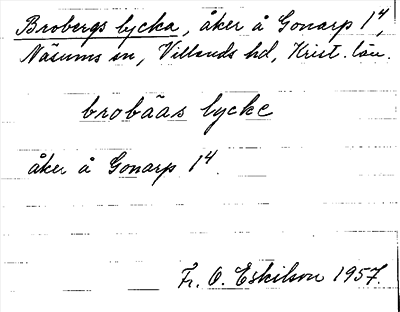 Brobergs lycka, åker å Gonarp 1⁴,
Näsums sn, Villands hd, Krist. län.
brobāas lycke
åker å Gonarp 1⁴.
Fr. O. Eskilson 1957.